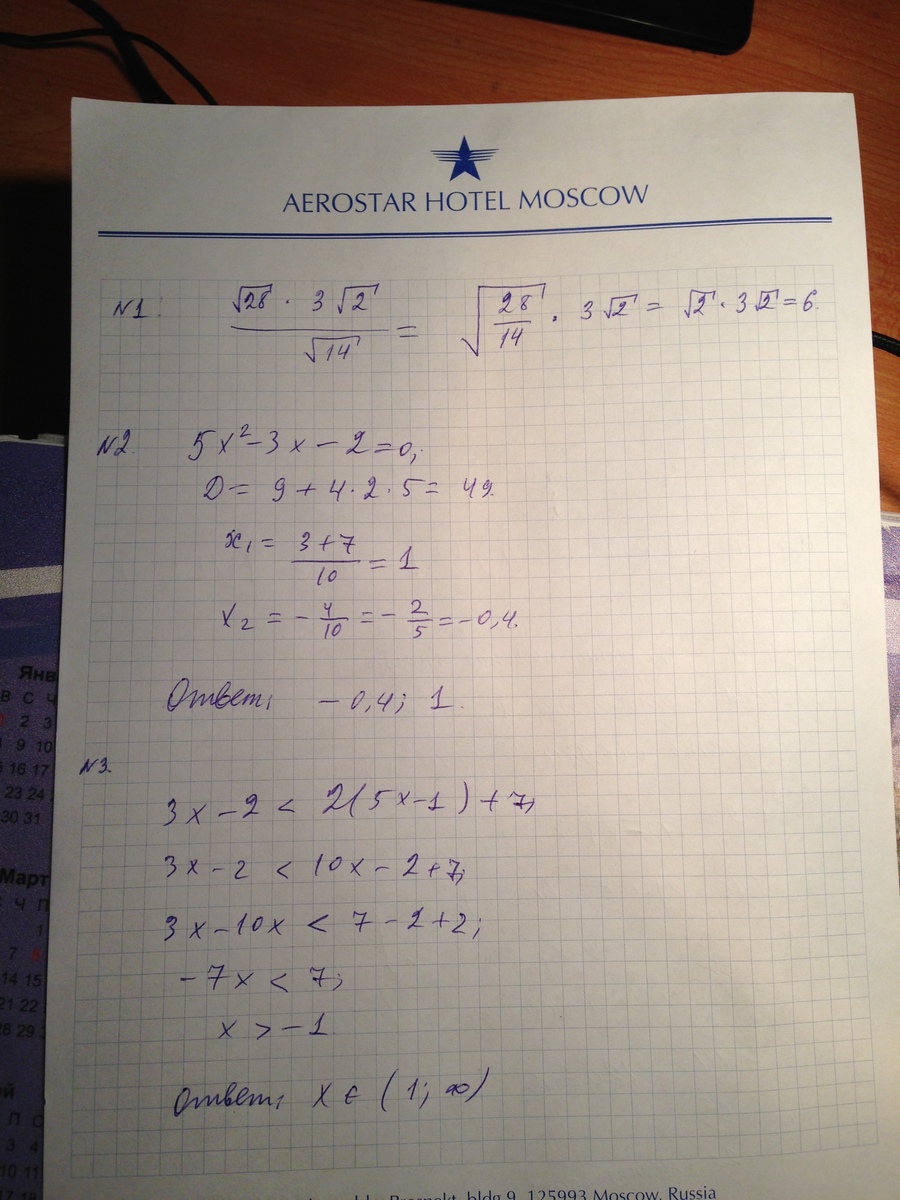 AEROSTAR HOTEL MOSCOW
N1: (√28 · 3√2)/√14 = √(28/14) · 3√2 = √2 · 3√2 = 6.
N2. 5x² - 3x - 2 = 0;
D = 9 + 4·2·5 = 49.
x₁ = (3+7)/10 = 1
x₂ = -4/10 = -2/5 = -0,4.
Ответ: -0,4; 1.
N3.
3x - 2 < 2(5x-1) + 7;
3x - 2 < 10x - 2 + 7;
3x - 10x < 7 - 2 + 2;
-7x < 7;
x > -1
Ответ: x ∈ (1; ∞)
Янв
В С Ч
2 3
9 10
16 17
23 24
30 31
Март
Ч П
1
7 8
14 15
21 22
28 29
П С
3 4
10 11
17 18
bldg 9, 125993 Moscow, Russia